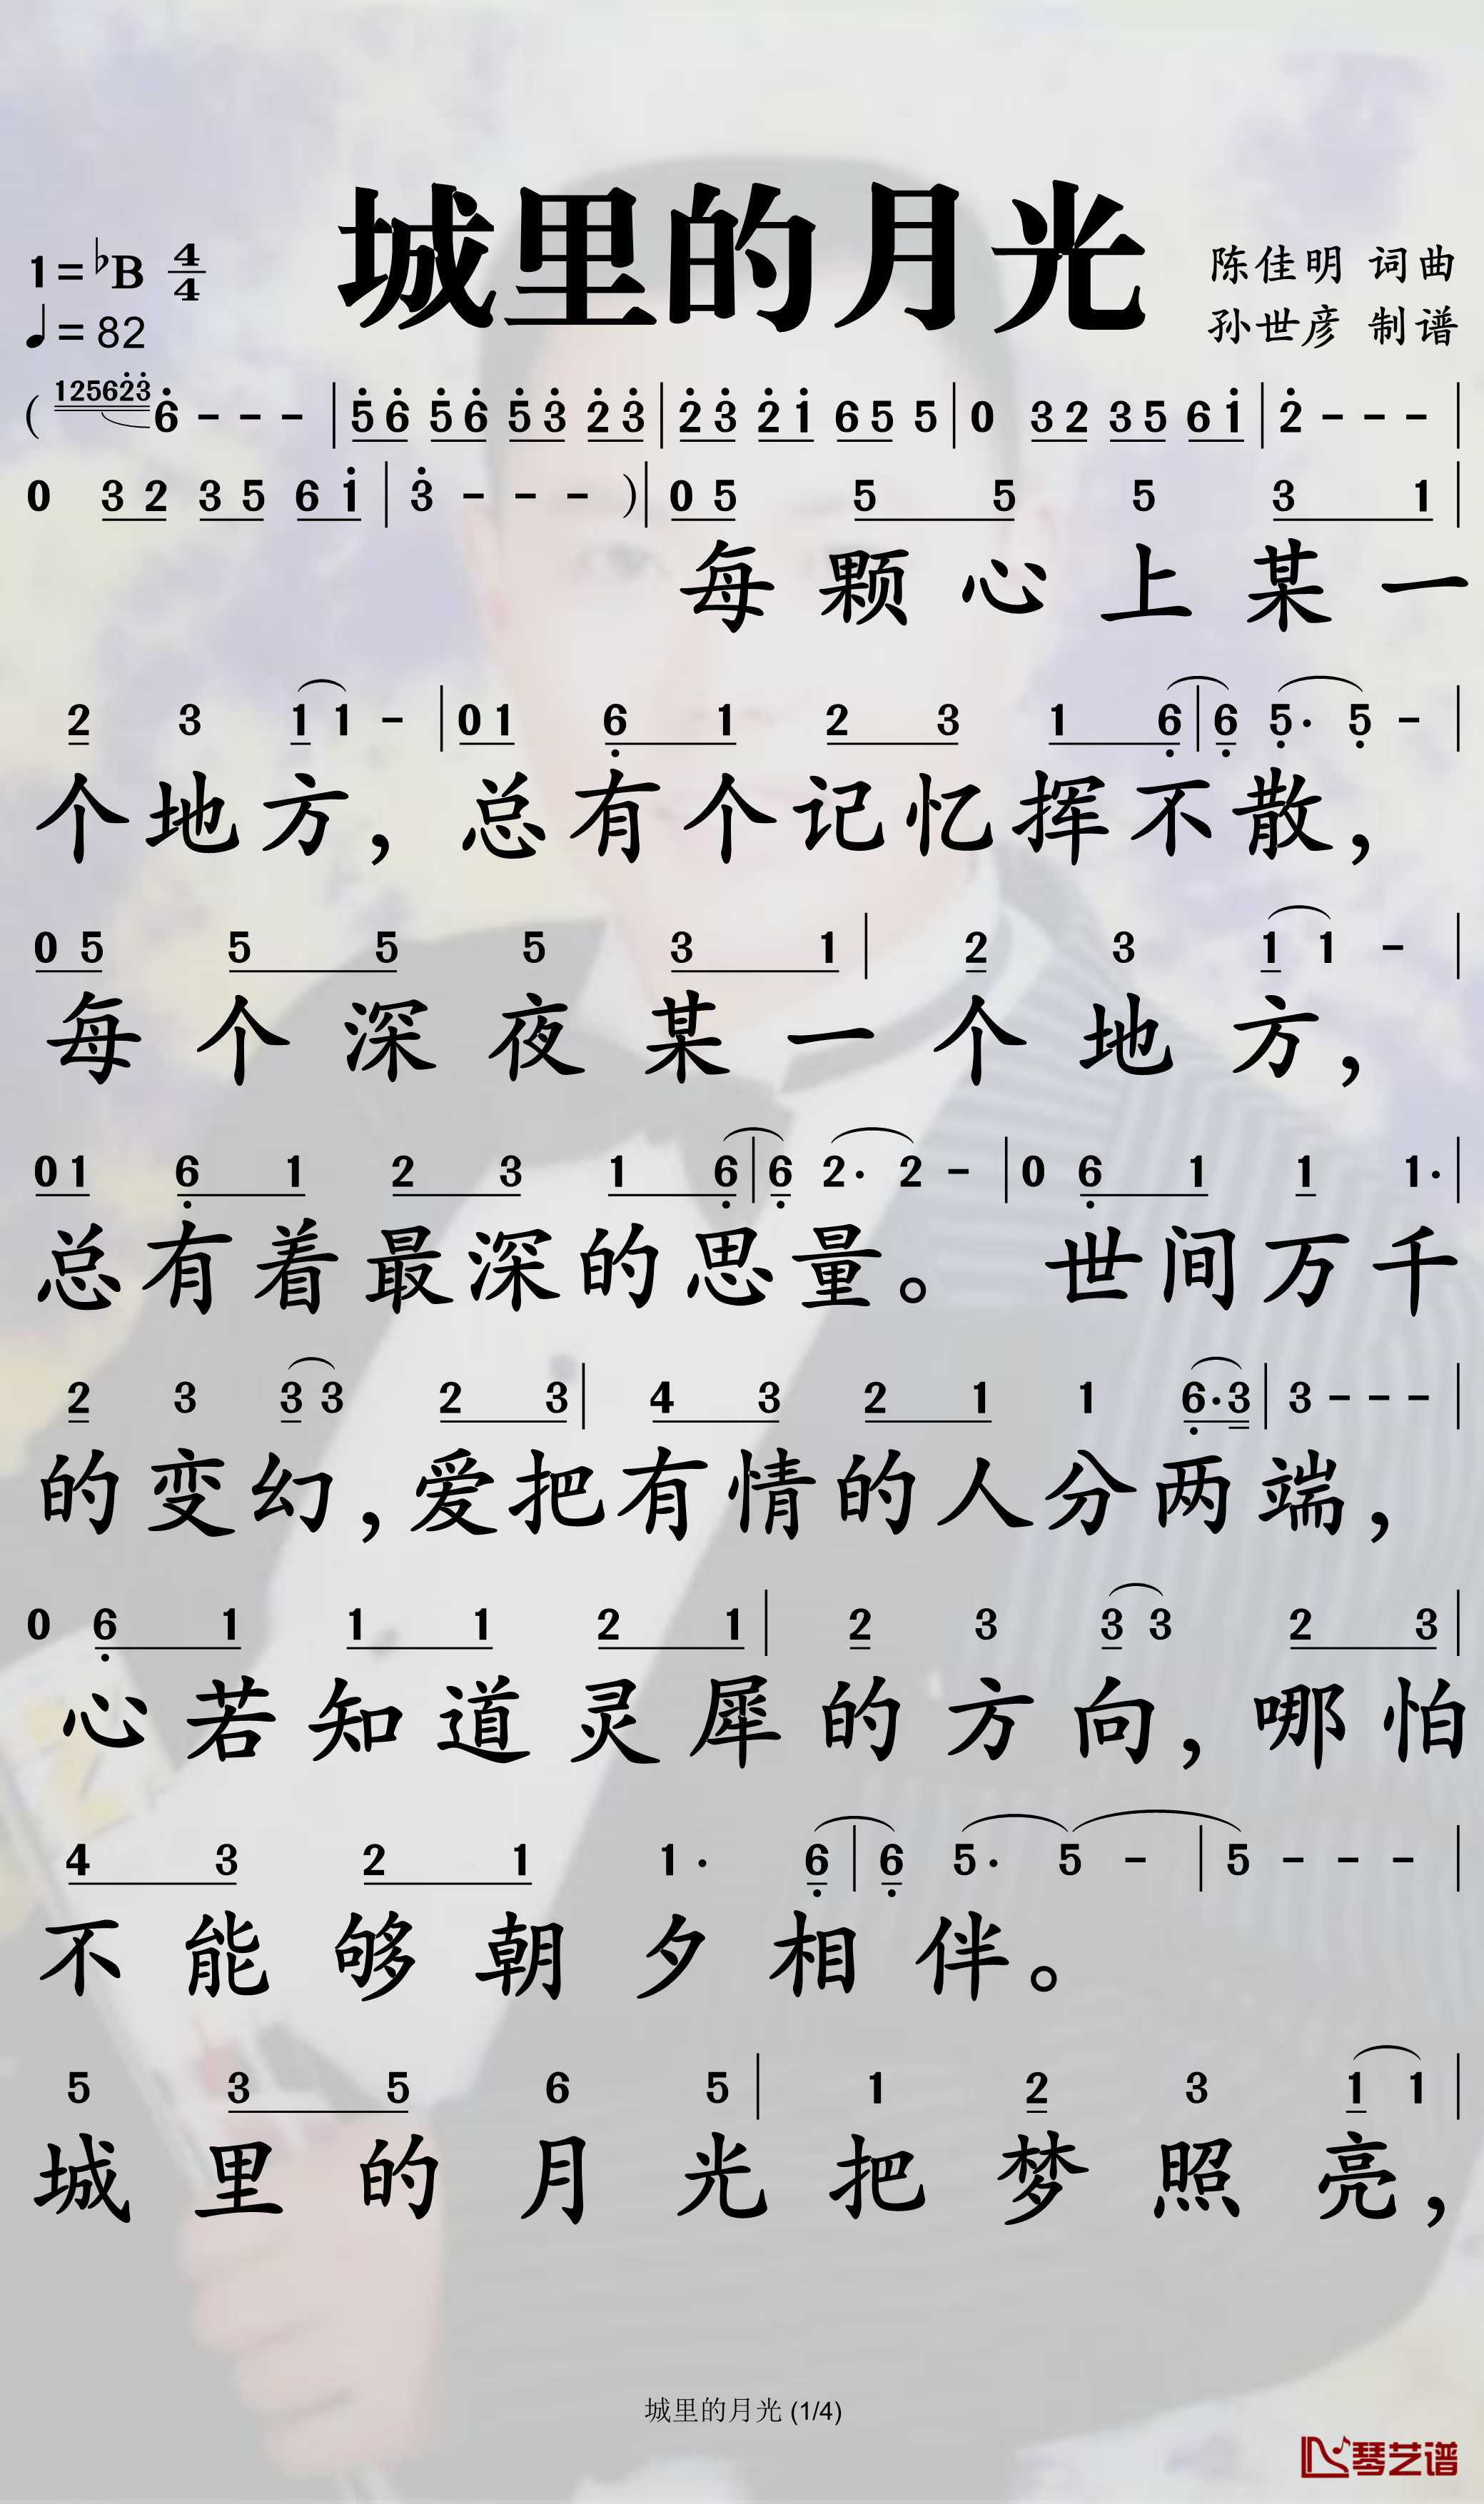 城里的月光
1=♭B 4/4
♩=82
陈佳明 词曲
孙世彦 制谱
( 12562̇3̇ 6̇ - - - | 5̇ 6̇ 5̇ 6̇ 5̇ 3̇ 2̇ 3̇ | 2̇ 3̇ 2̇ 1̇ 6 5 5 | 0 3 2 3 5 6 1̇ | 2̇ - - - |
0 3 2 3 5 6 1̇ | 3̇ - - - ) | 0 5 5 5 5 3 1 |
每颗心上某一
2 3 1 1 - | 0 1 6̣ 1 2 3 1 6̣ | 6̣ 5̣· 5̣ - |
个地方，总有个记忆挥不散，
0 5 5 5 5 3 1 | 2 3 1 1 - |
每个深夜某一个地方，
0 1 6̣ 1 2 3 1 6̣ | 6̣ 2· 2 - | 0 6̣ 1 1 1· |
总有着最深的思量。 世间万千
2 3 3 3 2 3 | 4 3 2 1 1 6̣·3 | 3 - - - |
的变幻，爱把有情的人分两端，
0 6̣ 1 1 1 2 1 | 2 3 3 3 2 3 |
心若知道灵犀的方向，哪怕
4 3 2 1 1· 6̣ | 6̣ 5· 5 - | 5 - - - |
不能够朝夕相伴。
5 3 5 6 5 | 1 2 3 1 1 |
城里的月光把梦照亮，
城里的月光 (1/4)
琴艺谱